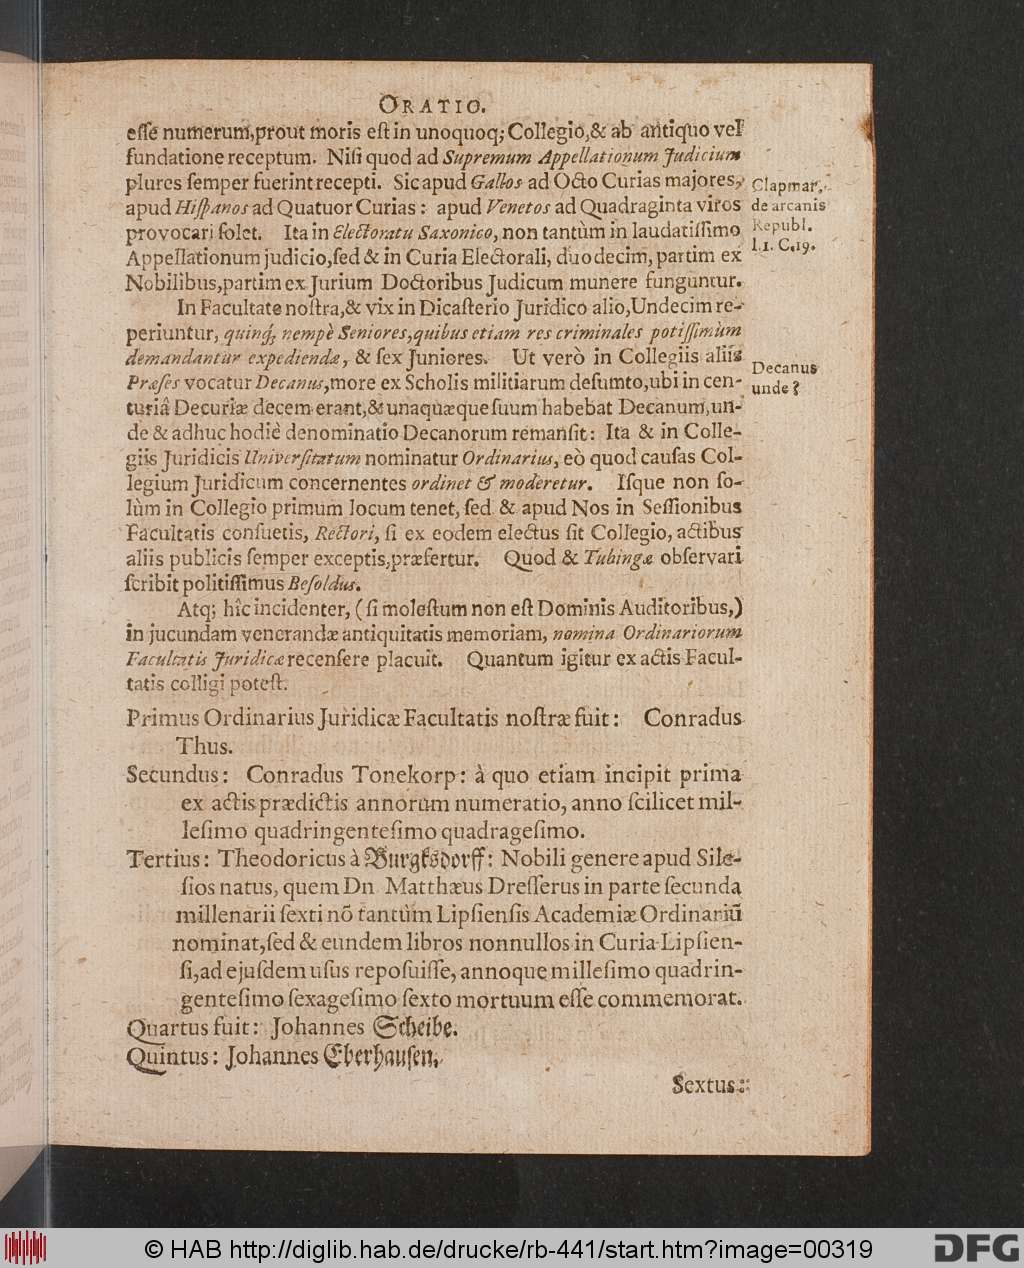 ORATIO.
eſſe numerum, prout moris eſt in unoquoq; Collegio, & ab antiquo vel
fundatione receptum. Niſi quod ad Supremum Appellationum Judicium
plures ſemper fuerint recepti. Sic apud Gallos ad Octo Curias majores,
apud Hiſpanos ad Quatuor Curias: apud Venetos ad Quadraginta viros
provocari ſolet. Ita in Electoratu Saxonico, non tantùm in laudatiſſimo
Appellationum judicio, ſed & in Curia Electorali, duodecim, partim ex
Nobilibus, partim ex Jurium Doctoribus Judicum munere funguntur.
Clapmar.
de arcanis
Republ.
l.1. C.19.
In Facultate noſtra, & vix in Dicaſterio Juridico alio, Undecim re-
periuntur, quinq́; nempè Seniores, quibus etiam res criminales potiſſimùm
demandantur expediendæ, & ſex Juniores. Ut verò in Collegiis aliis
Præſes vocatur Decanus, more ex Scholis militiarum deſumto, ubi in cen-
turiâ Decuriæ decem erant, & unaquæque ſuum habebat Decanum, un-
de & adhuc hodiè denominatio Decanorum remanſit: Ita & in Colle-
giis Juridicis Univerſitatum nominatur Ordinarius, eò quod cauſas Col-
legium Juridicum concernentes ordinet & moderetur. Iſque non ſo-
lùm in Collegio primum locum tenet, ſed & apud Nos in Seſſionibus
Facultatis conſuetis, Rectori, ſi ex eodem electus ſit Collegio, actibus
aliis publicis ſemper exceptis, præfertur. Quod & Tubingæ obſervari
ſcribit politiſſimus Beſoldus.
Decanus
unde?
Atq; hîc incidenter, (ſi moleſtum non eſt Dominis Auditoribus,)
in jucundam venerandæ antiquitatis memoriam, nomina Ordinariorum
Facultatis Juridicæ recenſere placuit. Quantum igitur ex actis Facul-
tatis colligi poteſt.
Primus Ordinarius Juridicæ Facultatis noſtræ fuit: Conradus
Thus.
Secundus: Conradus Tonekorp: à quo etiam incipit prima
ex actis prædictis annorum numeratio, anno ſcilicet mil-
leſimo quadringenteſimo quadrageſimo.
Tertius: Theodoricus à Burgksdorff: Nobili genere apud Sile-
ſios natus, quem Dn. Matthæus Dreſſerus in parte ſecunda
millenarii ſexti nō tantùm Lipſienſis Academiæ Ordinariū
nominat, ſed & eundem libros nonnullos in Curia Lipſien-
ſi, ad ejuſdem uſus repoſuiſſe, annoque milleſimo quadrin-
genteſimo ſexageſimo ſexto mortuum eſſe commemorat.
Quartus fuit: Johannes Scheibe.
Quintus: Johannes Eberhauſen.
Sextus:
© HAB http://diglib.hab.de/drucke/rb-441/start.htm?image=00319
DFG